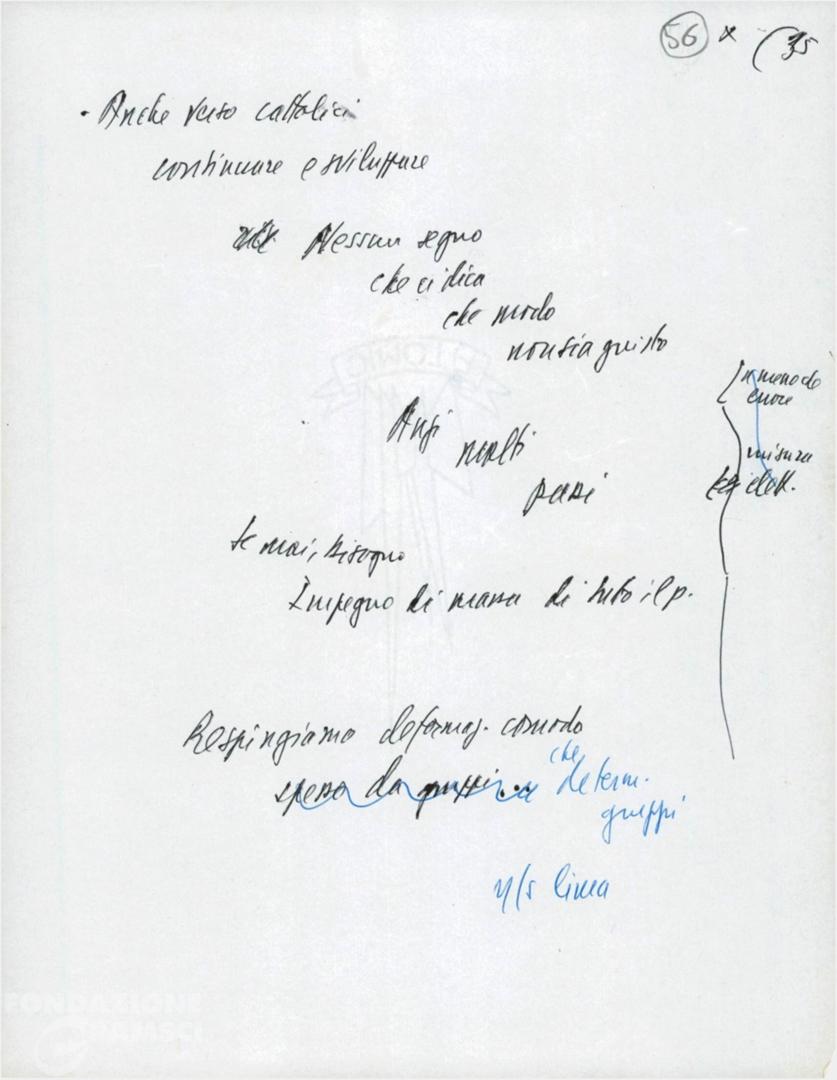 56 x (35
- Anche verso cattolici
continuare e sviluppare
Nessun segno
che ci dica
che modo
non sia giusto
Anzi
molti
passi
in meno de
cuore
misura
Se mai, bisogno
Impegno di massa di tutto il p.
Respingiamo deformaz. comodo
spesso da gruppi...
che
determ.
gruppi
n/s linea
FONDAZIONE
GRAMSCI